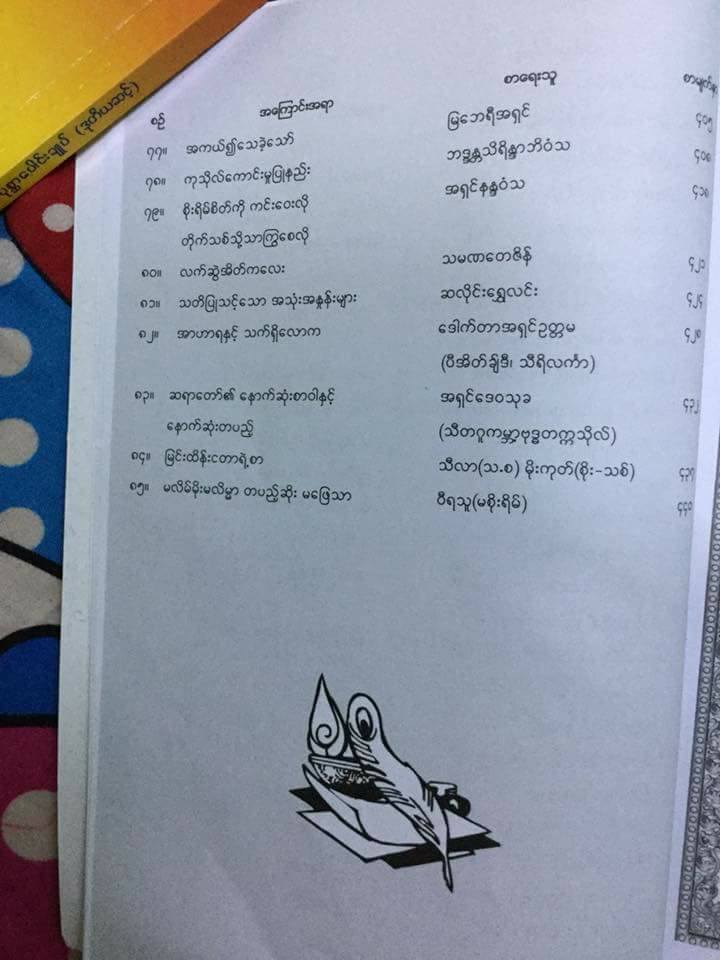 ပုစ္ဆာပေါင်းချုပ် (ဒုတိယဆင့်)
စဉ် အကြောင်းအရာ စာရေးသူ
၇၇။ အကယ်၍သေခဲ့သော် မြဘေရီအရှင် ၄၀၅
၇၈။ ကုသိုလ်ကောင်းမှုပြုနည်း ဘဒ္ဒန္တသိရိန္ဒာဘိဝံသ ၄၀၈
၇၉။ စိုးရိမ်စိတ်ကို ကင်းဝေးလို အရှင်နန္ဒဝံသ ၄၁၈
တိုက်သစ်သို့သာကြွစေလို
၈၀။ လက်ဆွဲအိတ်ကလေး သမဏတေဇိန် ၄၂၁
၈၁။ သတိပြုသင့်သော အသုံးအနှုန်းများ ဆလိုင်းရွှေလင်း ၄၂၄
၈၂။ အာဟာရနှင့် သက်ရှိလောက ဒေါက်တာအရှင်ဥတ္တမ ၄၂၈
(ပီအိတ်ချ်ဒီ၊ သီရိလင်္ကာ)
၈၃။ ဆရာတော်၏ နောက်ဆုံးစာဝါနှင့် အရှင်ဒေဝသုခ ၄၃၂
နောက်ဆုံးတပည့် (သီတဂူကမ္ဘာ့ဗုဒ္ဓတက္ကသိုလ်)
၈၄။ မြင်းထိန်းငတာရဲ့စာ သီလာ(သ.စ) မိုးကုတ်(စိုး-သစ်) ၄၃၇
၈၅။ မလိမ်မိုးမလိမ္မာ တပည့်ဆိုး မဖြေသာ ဝီရသူ(မစိုးရိမ်) ၄၄၀